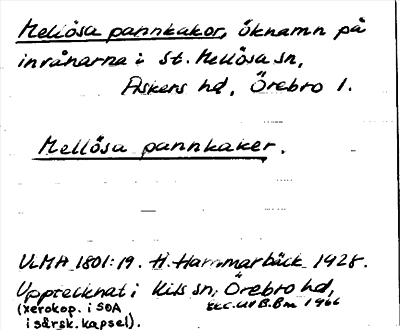 Mellösa pannkakor, öknamn på
invånarna i St. Mellösa sn,
Askers hd, Örebro l.
Mellösa pannkaker.
ULMA 1801:19. H. Hammarbäck 1928.
Upptecknat i Kils sn, Örebro hd,
(xerokop. i SOA
i särsk. kapsel).
exc. UlB.Bm 1966